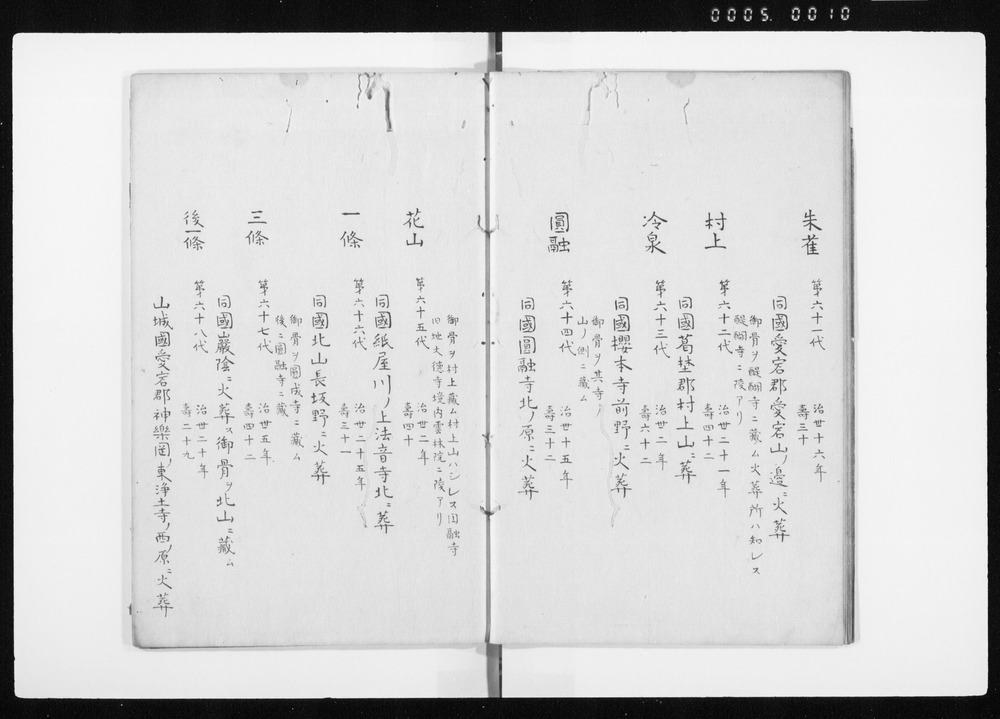 0005. 0010
朱雀
第六十一代
治世十六年
壽三十
同國愛宕郡愛宕山ノ邉ニ火葬
御骨ヲ醍醐寺ニ藏ム火葬所ハ知レス
醍醐寺ニ陵アリ
村上
第六十二代
治世二十一年
壽四十二
同國葛埜郡村上山ニ葬
冷泉
第六十三代
治世二年
壽六十二
同國櫻本寺前野ニ火葬
御骨ヲ其寺ノ
山ノ側ニ藏ム
圓融
第六十四代
治世十五年
壽三十二
同國圓融寺北ノ原ニ火葬
御骨ヲ村上藏ム村上山ハシレス圓融寺
旧地大徳寺境内雲林院ニ陵アリ
花山
第六十五代
治世二年
壽四十
同國紙屋川ノ上法音寺北ニ葬
一條
第六十六代
治世二十五年
壽三十一
同國北山長坂野ニ火葬
御骨ヲ圓成寺ニ藏ム
後ニ圓融寺ニ藏
三條
第六十七代
治世五年
壽四十二
同國巖陰ニ火葬ス御骨ヲ北山ニ藏ム
後一條
第六十八代
治世二十年
壽二十九
山城國愛宕郡神樂岡ノ東浄土寺ノ西ノ原ニ火葬